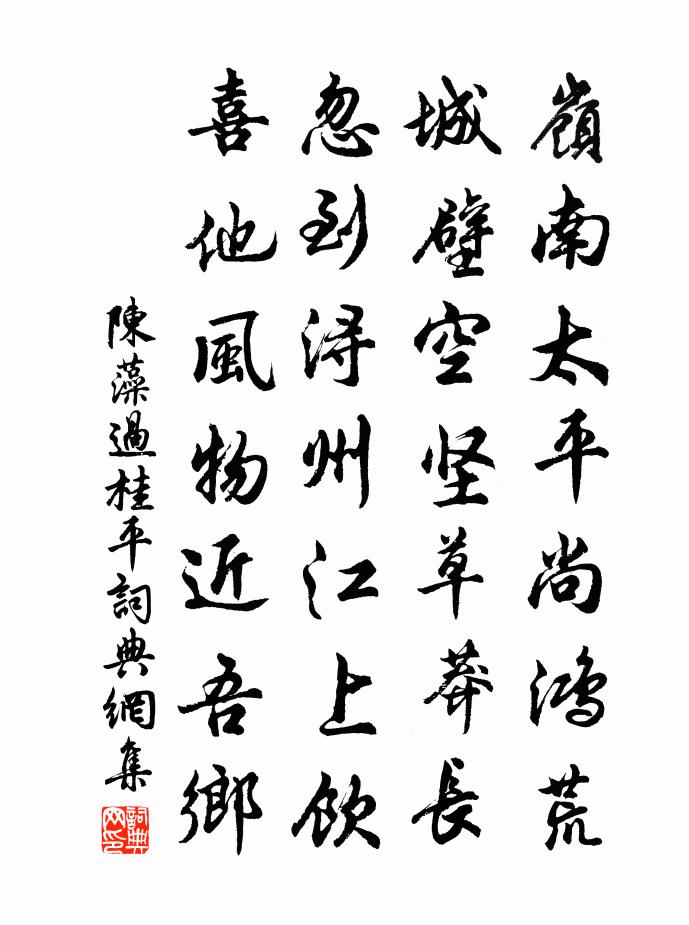 嶺南太平尚鴻荒
城壁空坚草莽長
忽到浔州江上飲
喜他風物近吾鄉
陳藻過桂平詞典網集
詞典网印